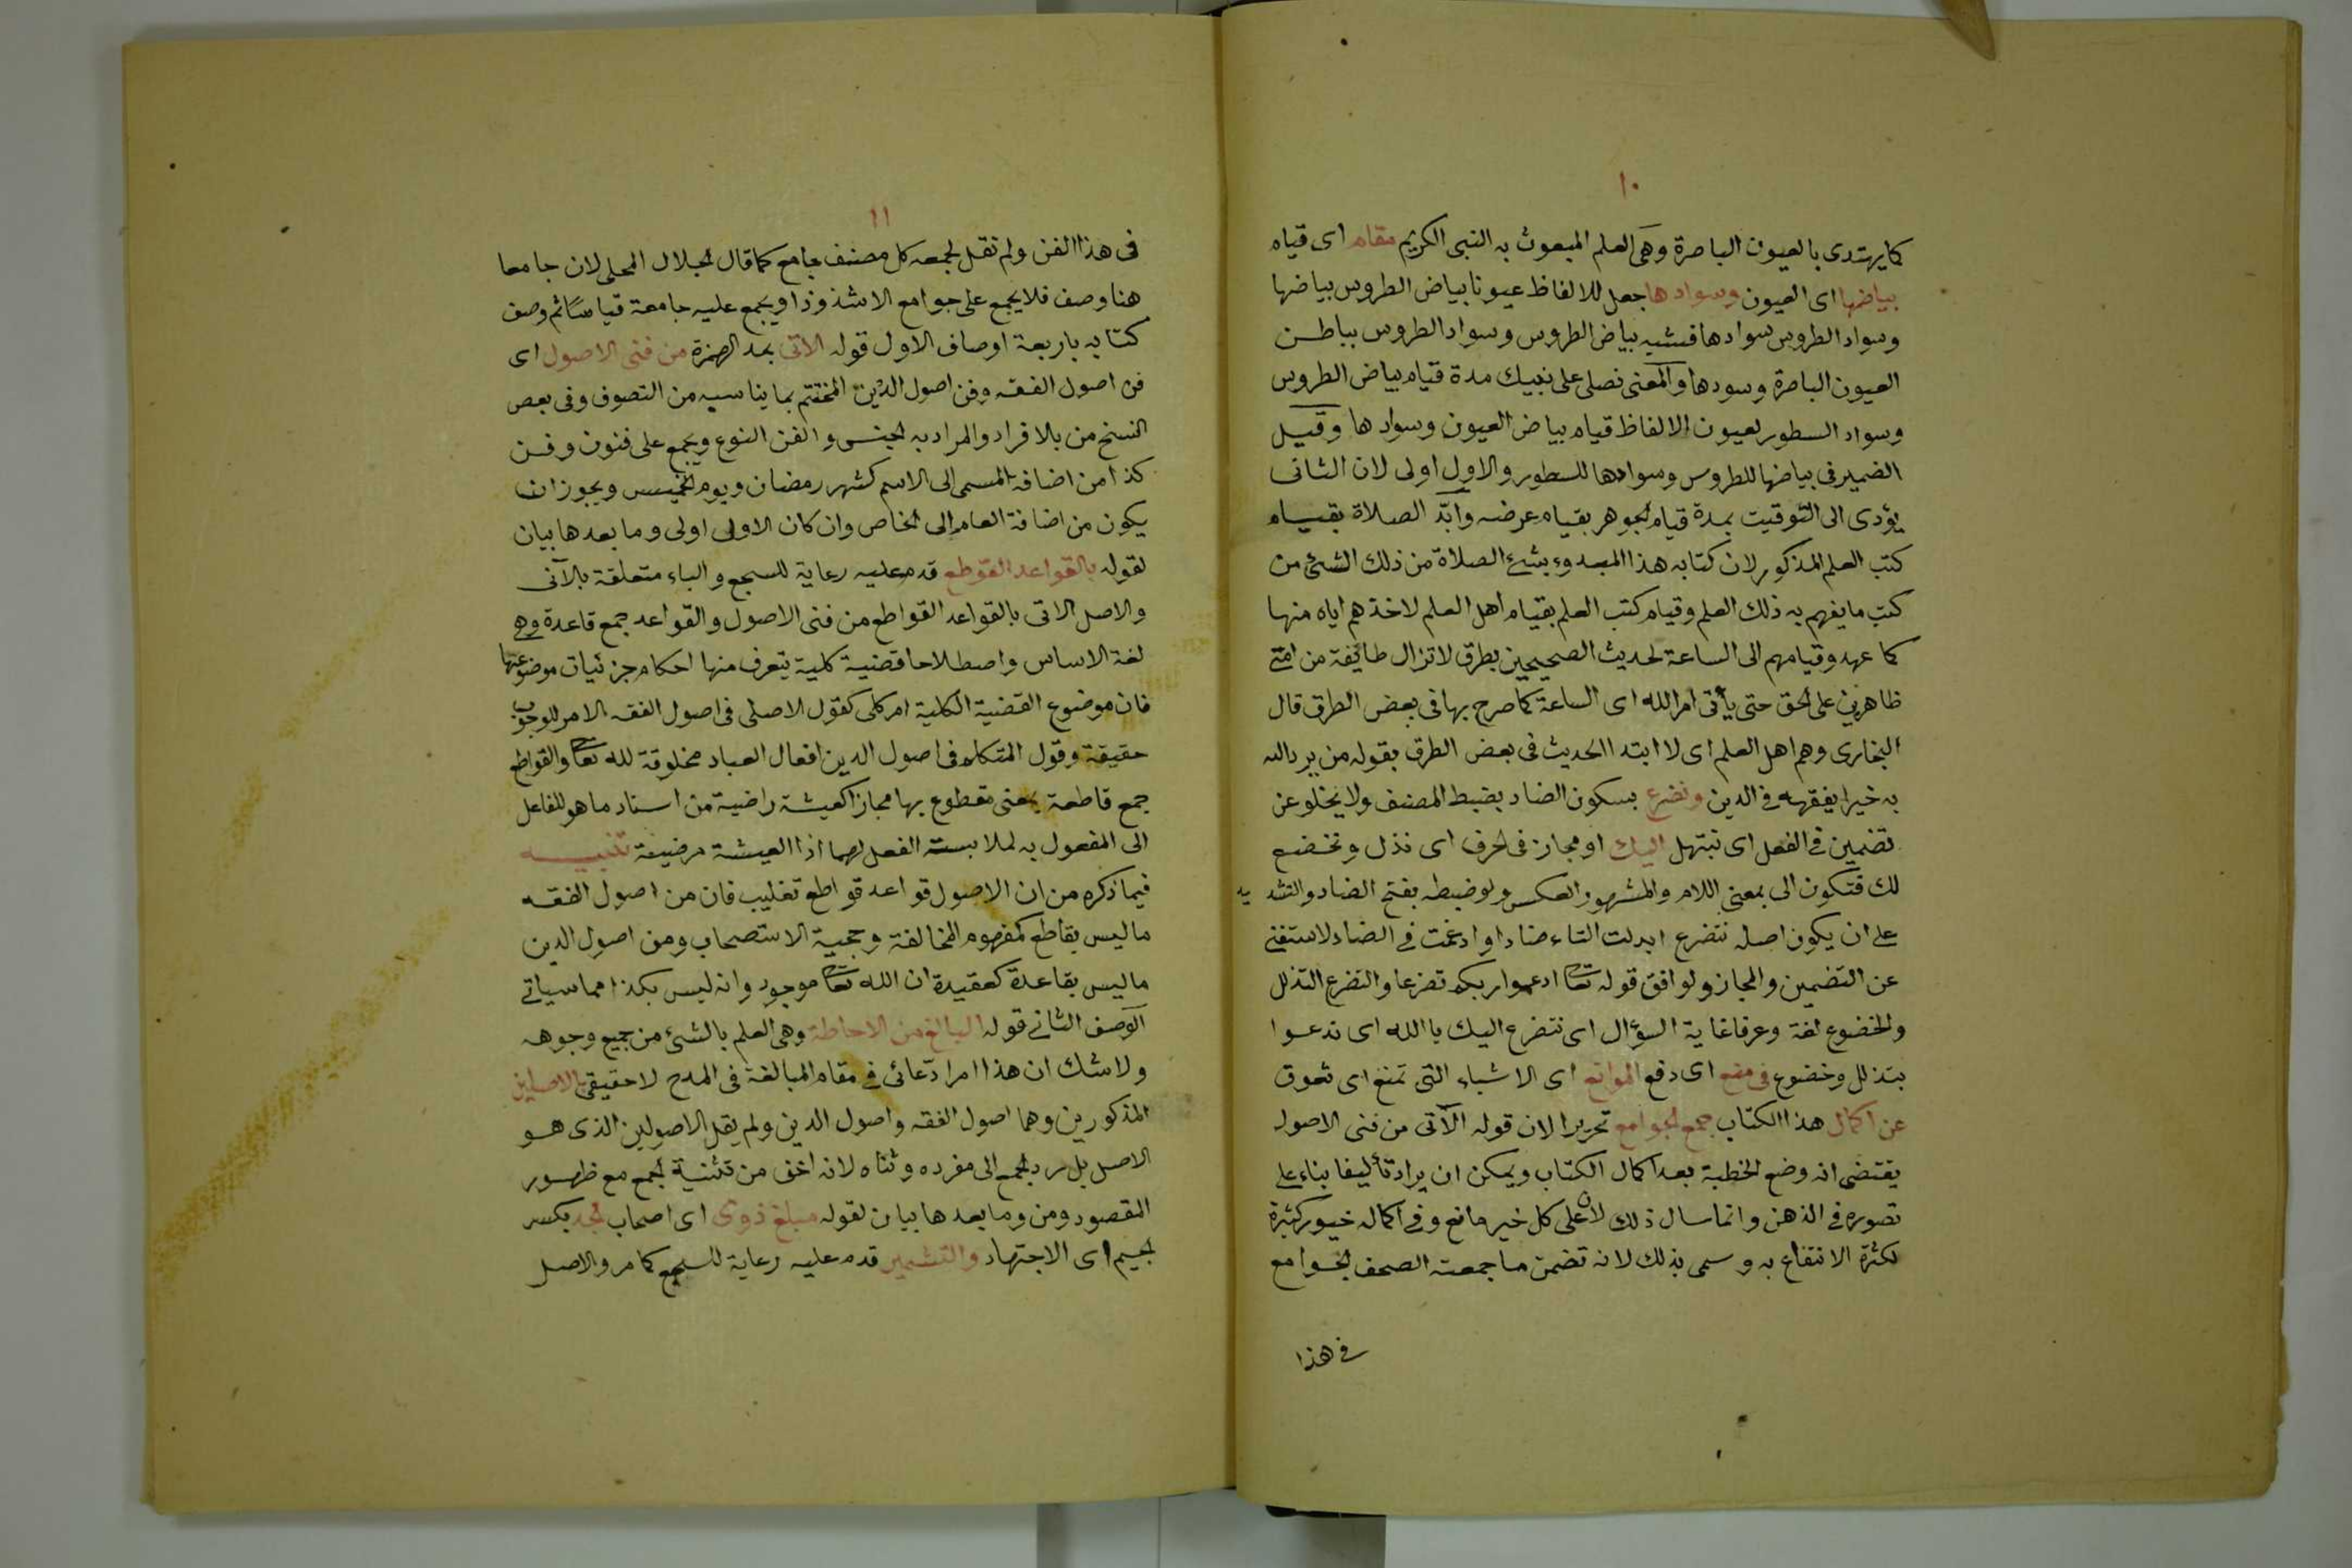 ١٠
كما يهتدى بالعيون الباصرة وهى العلم المبعوث به النبى الكريم مقام اى قيام
بياضها اى العيون وسوادها جعل للالفاظ عيونا بياض الطروس بياضها
وسواد الطروس سوادها فشبه بياض الطروس وسواد الطروس بباطن
العيون الباصرة وسودها والمعنى نصلى على نبيك مدة قيام بياض الطروس
وسواد السطور لعيون الالفاظ قيام بياض العيون وسوادها وقيل
الضمير فى بياضها للطروس وسوادها للسطور والاول اولى لان الثانى
يؤدى الى التوقيت بمدة قيام الجوهر بقيام عرضه وأبّد الصلاة بقيام
كتب العلم المذكور لان كتابه هذا المبدوء بشئ الصلاة من ذلك الشئ من
كتب ما يفهم به ذلك العلم وقيام كتب العلم بقيام اهل العلم لاخذهم اياه منها
كما عهد وقيامهم الى الساعة لحديث الصحيحين بطرق لاتزال طايفة من امتى
ظاهرين على الحق حتى يأتى امر الله اى الساعة كما صرح بها فى بعض الطرق قال
البخارى وهم اهل العلم اى لا ابتدا الحديث فى بعض الطرق بقوله من يرد الله
به خيرا يفقهه فى الدين ونضرع بسكون الضاد بضبط المصنف ولا يخلو عن
تضمين فى الفعل اى نبتهل اليك او مجاز فى الحرف اى نذل ونخضع
لك فتكون الى بمعنى اللام والمشهور العكس ولو ضبطه بفتح الضاد والتشديد
على ان يكون اصله نتضرع ابدلت التاء ضادا وادغمت فى الضاد لاستغنى
عن التضمين والمجاز ولوافق قوله تعا ادعوا ربكم تضرعا والتضرع التذلل
والخضوع لغة وعرفا غاية السؤال اى نتضرع اليك يا الله اى ندعوا
بتذلل وخضوع فى منع اى دفع الموانع اى الاشياء التى تمنع اى تعوق
عن اكمال هذا الكتاب جمع الجوامع تحريرا لان قوله الآتى من فنى الاصول
يقتضى انه وضع الخطبة بعد اكمال الكتاب ويمكن ان يراد تأليفا بناء على
تصوره فى الذهن وانما سال ذلك لان على كل خير مانع وفى اكماله خيور كثيرة
لكثرة الانتفاع به وسمى بذلك لانه تضمن ما جمعته الصحف الجوامع
فى هذا
١١
فى هذا الفن ولم تقل لجمعه كل مصنف جامع كما قال الجلال المحلى لان جامعا
هنا وصف فلا يجمع على جوامع الا شذوذا ويجمع عليه جامعة قياسا ثم وصف
كتابه باربعة اوصاف الاول قوله الاتى بمد الهمزة من فنى الاصول اى
فن اصول الفقه وفن اصول الدين المختتم بما يناسبه من التصوف وفى بعض
النسخ من بالافراد والمراد به الجنس والفن النوع ويجمع على فنون وفن
كذا من اضافة المسمى الى الاسم كشهر رمضان ويوم الخميس ويجوز ان
يكون من اضافة العام الى الخاص وان كان الاولى اولى وما بعدها بيان
لقوله بالقواعد القوطع قدم عليه رعاية للسجع والباء متعلقة بالآتى
والاصل الاتى بالقواعد القواطع من فنى الاصول والقواعد جمع قاعدة وهى
لغة الاساس واصطلاحا قضية كلية يتعرف منها احكام جزئيات موضوعها
فان موضوع القضية الكلية امر كلى كقول الاصلى فى اصول الفقه الامر للوجوب
حقيقة وقول المتكلم فى اصول الدين افعال العباد مخلوقة لله تعا والقواطع
جمع قاطعة بمعنى مقطوع بها مجازا كعيشة راضية من اسناد ما هو للفاعل
الى المفعول به لملابسة الفعل لهما اذا العيشة مرضية تنبيه
فيما ذكره من ان الاصول قواعد قواطع تغليب فان من اصول الفقه
ما ليس بقاطع كمفهوم المخالفة وحجية الاستصحاب ومن اصول الدين
ما ليس بقاعدة كعقيدة ان الله تعا موجود وانه ليس بكذا مما سياتى
الوصف الثانى قوله البالغ من الاحاطة وهى العلم بالشئ من جميع وجوهه
ولا شك ان هذا امر ادّعائى فى مقام المبالغة فى المدح لا حقيقى بالاصلين
المذكورين وهما اصول الفقه واصول الدين ولم يقل الاصولين الذى هو
الاصل بل رد الجمع الى مفرده وثناه لانه اخف من تثنية الجمع مع ظهور
المقصود ومن وما بعدها بيان لقوله مبلغ ذوى اى اصحاب الجد بكسر
الجيم اى الاجتهاد والتشمير قدم عليه رعاية للسجع كما مر والاصل